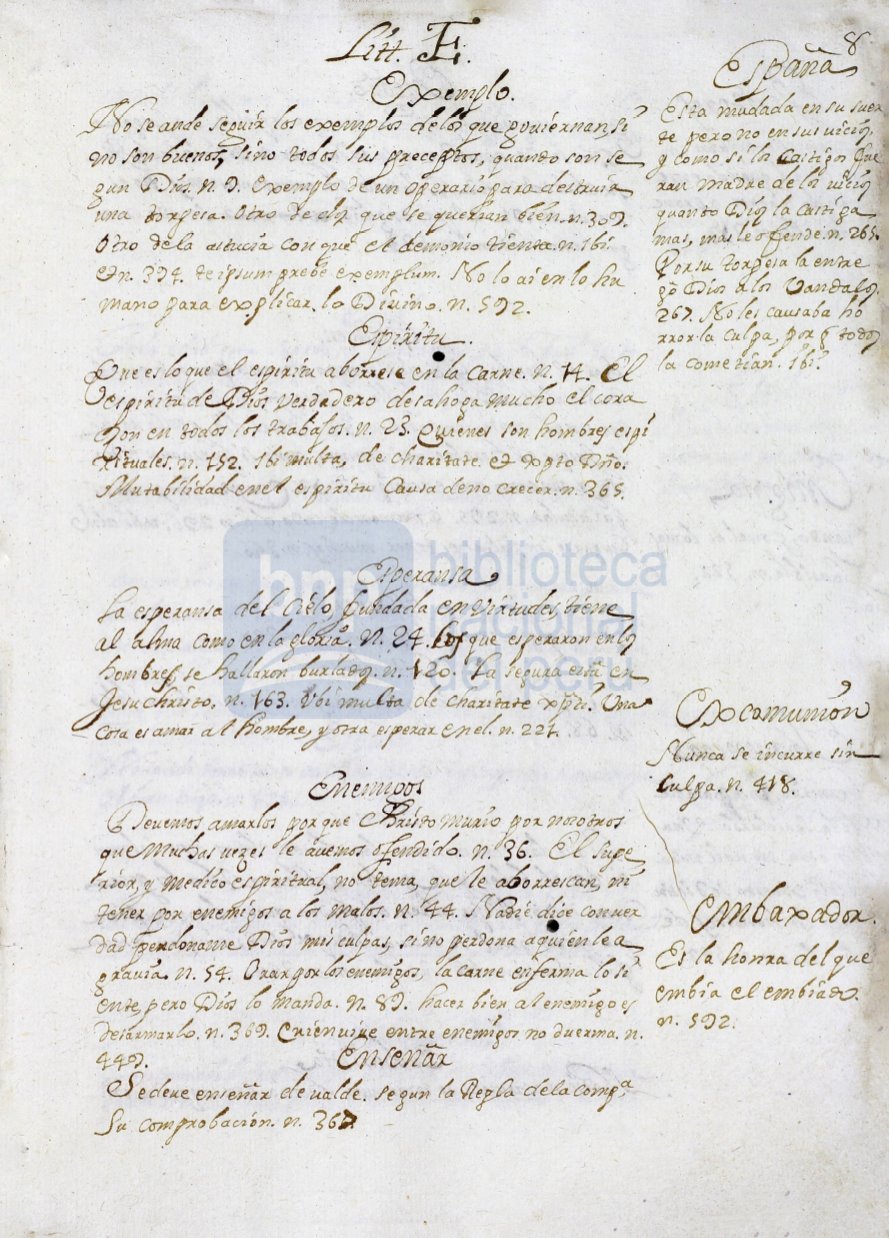 Litt. E.
8
Exemplo.
No se ande seguir los exemplos delos que goviernan, si
no son buenos, sino todos sus preceptos, quando son se
gun Dios. n. 9. Exemplo de un operario para destruir
una torpesa. Otro de dos que se querian bien. n. 309.
Otro de la astucia con que el demonio tienta. n. ibi
et n. 394. te ipsum prebe exemplum. No lo ai en lo hu
mano para explicar lo Divino. n. 592.
Espiritu.
Que es lo que el espiritu aborrese en la carne. n. 14. El
espiritu de Dios verdadero desahoga mucho el cora
zon en todos los trabajos. n. 23. Quienes son hombres espi
rituales. n. 152. Ibi multa, de charitate et xpto Dño.
Mutabilidad en el espiritu causa de no crecer. n. 365.
Esperansa
La esperansa del Cielo fundada en virtudes, tiene
al alma como en la gloria. n. 24. Los que esperaron en los
hombres se hallaron burlados. n. 120. La segura está en
Jesu christo. n. 163. Ubi multa de charitate xpi. Una
cosa es amar al hombre, y otra esperar en el. n. 221.
Enemigos
Devemos amarlos por que Christo murio por nosotros
que muchas vezes le avemos ofendido. n. 36. El supe
rior, y medico espiritral, no tema, que le aborrescan, ni
tener por enemigos a los malos. n. 44. Nadie dice con ver
dad perdoname Dios mis culpas, si no perdona a quien le a
gravia. n. 54. Orar por los enemigos, la carne enferma lo si
ente, pero Dios lo manda. n. 89. hacer bien al enemigo es
desarmarlo. n. 369. Quien vive entre enemigos no duerma. n.
449.
Enseñar
Se deve enseñar de valde. segun la Regla de la compª
Su comprobación. n. 367.
España
Esta mudada en su suer
te pero no en sus vicios,
y como si los castigos fue
ran madre de los vicios
quanto Dios la castiga
mas, mas le ofende. n. 265.
Por su torpesa la entre
gó Dios a los Vandalos.
267. No les causaba ho
rror la culpa, por q todos
la cometian. ibi.
Excomunion
Nunca se incurre sin
culpa. n. 418.
Embaxador.
Es la honra del que
embia el embiado.
n. 592.
biblioteca
nacional
del perú
bnp